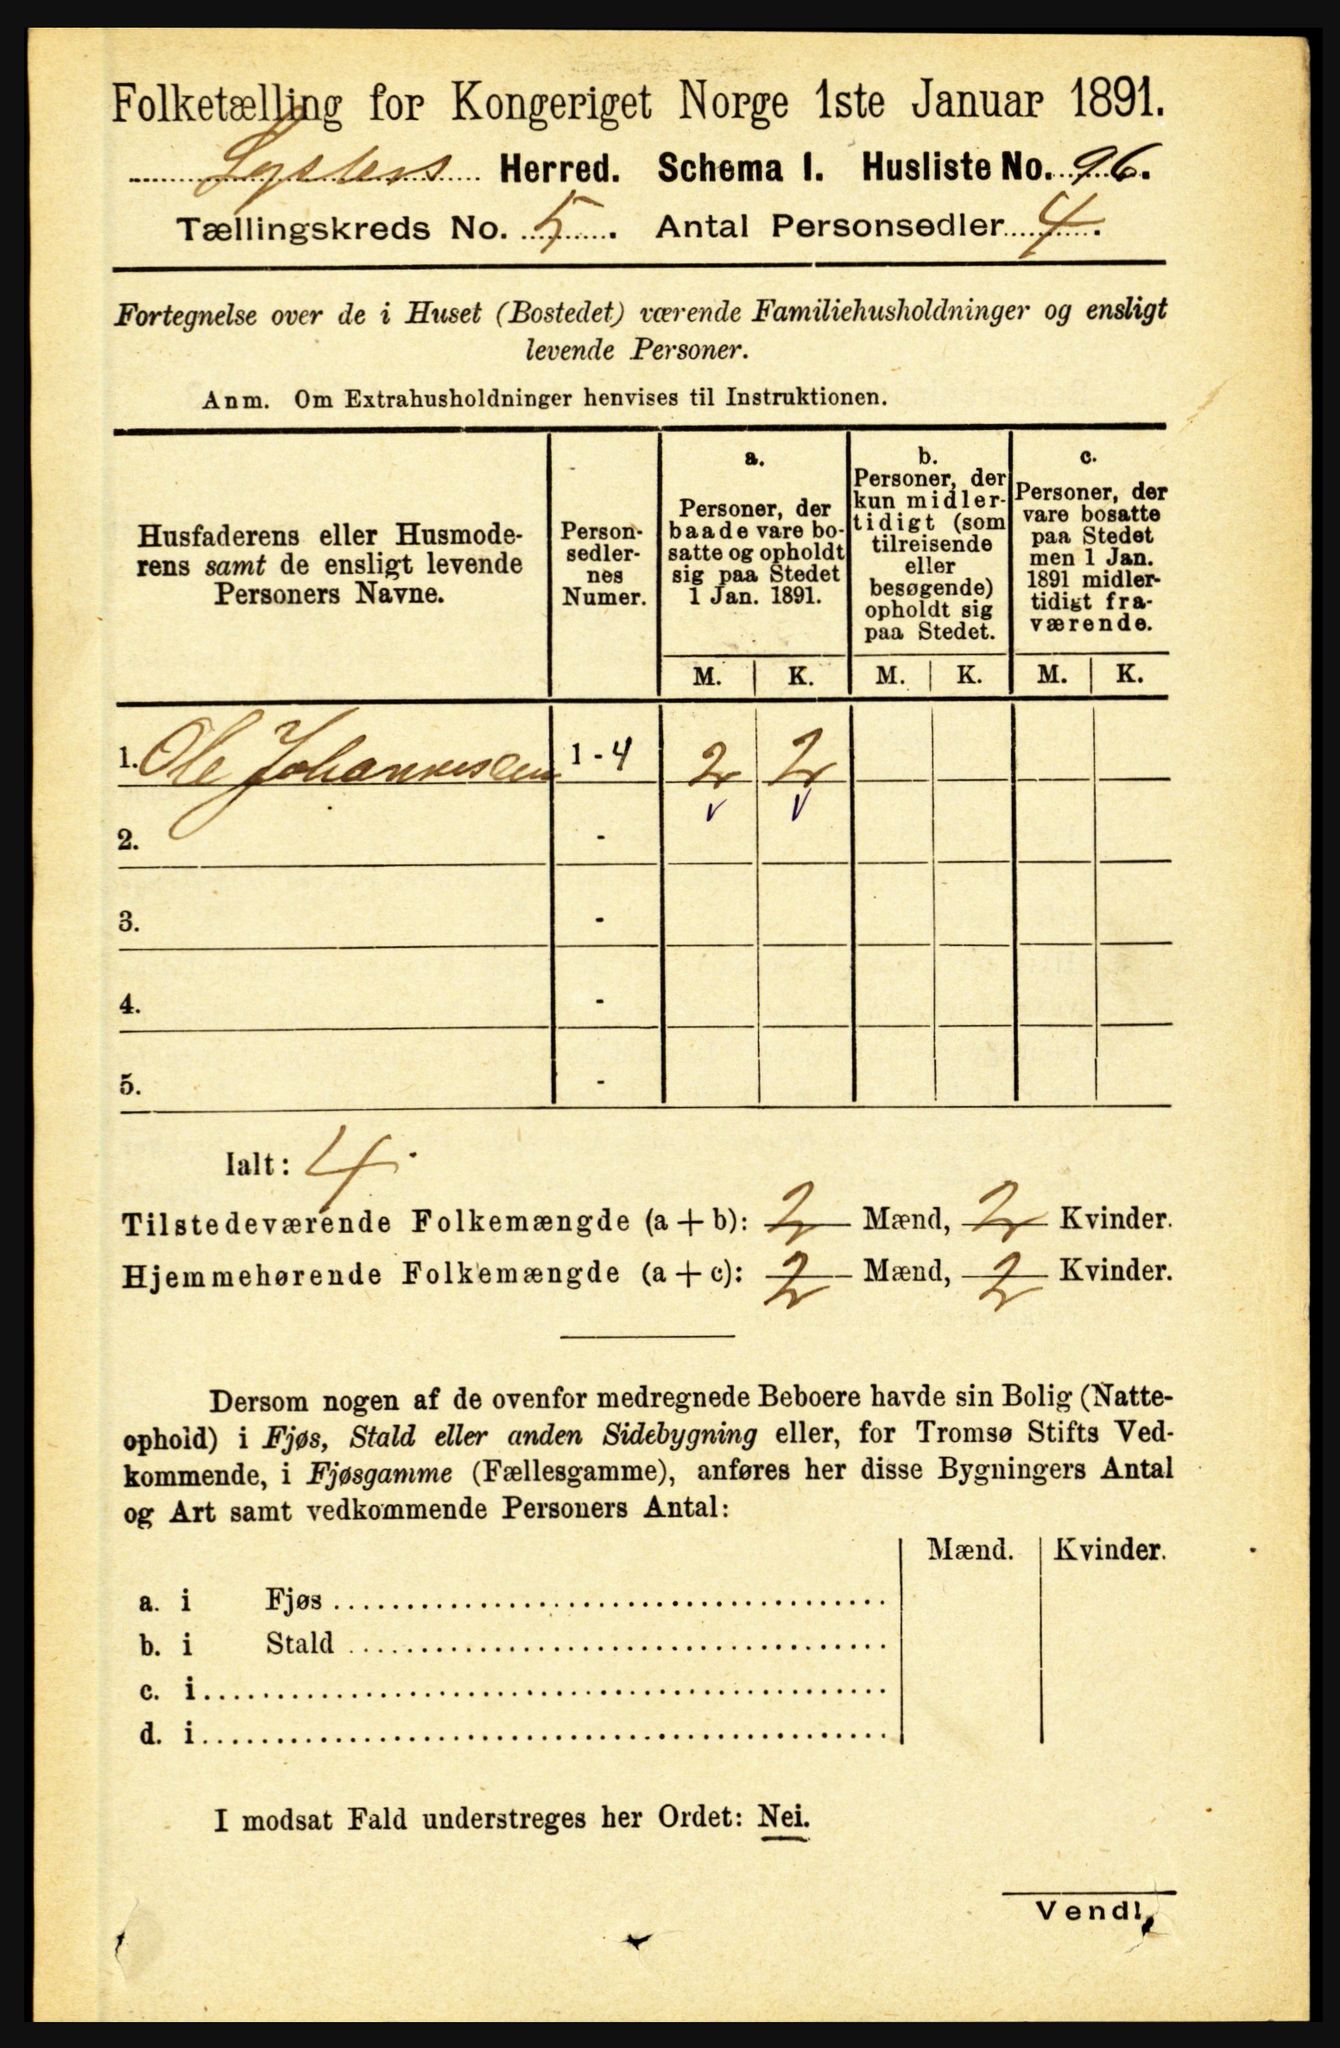 Folketælling for Kongeriget Norge 1ste Januar 1891.
Lysters Herred. Schema I. Husliste No. 96.
Tællingskreds No. 5. Antal Personsedler 4.
Fortegnelse over de i Huset (Bostedet) værende Familiehusholdninger og ensligt
levende Personer.
Anm. Om Extrahusholdninger henvises til Instruktionen.
Husfaderens eller Husmode-
rens samt de ensligt levende
Personers Navne.
Person-
sedler-
nes
Numer.
a.
Personer, der
baade vare bo-
satte og opholdt
sig paa Stedet
1 Jan. 1891.
b.
Personer, der
kun midler-
tidigt (som
tilreisende
eller
besøgende)
opholdt sig
paa Stedet.
c.
Personer, der
vare bosatte
paa Stedet
men 1 Jan.
1891 midler-
tidigt fra-
værende.
M. K. M. K. M. K.
1. Ole Johannesen 1 - 4 2 2
2. -
3. -
4. -
5. -
Ialt: 4.
Tilstedeværende Folkemængde (a + b): 2 Mænd, 2 Kvinder.
Hjemmehørende Folkemængde (a + c): 2 Mænd, 2 Kvinder.
Dersom nogen af de ovenfor medregnede Beboere havde sin Bolig (Natte-
ophold) i Fjøs, Stald eller anden Sidebygning eller, for Tromsø Stifts Ved-
kommende, i Fjøsgamme (Fællesgamme), anføres her disse Bygningers Antal
og Art samt vedkommende Personers Antal:
Mænd. Kvinder.
a. i Fjøs
b. i Stald
c. i
d. i
I modsat Fald understreges her Ordet: Nei.
Vend!